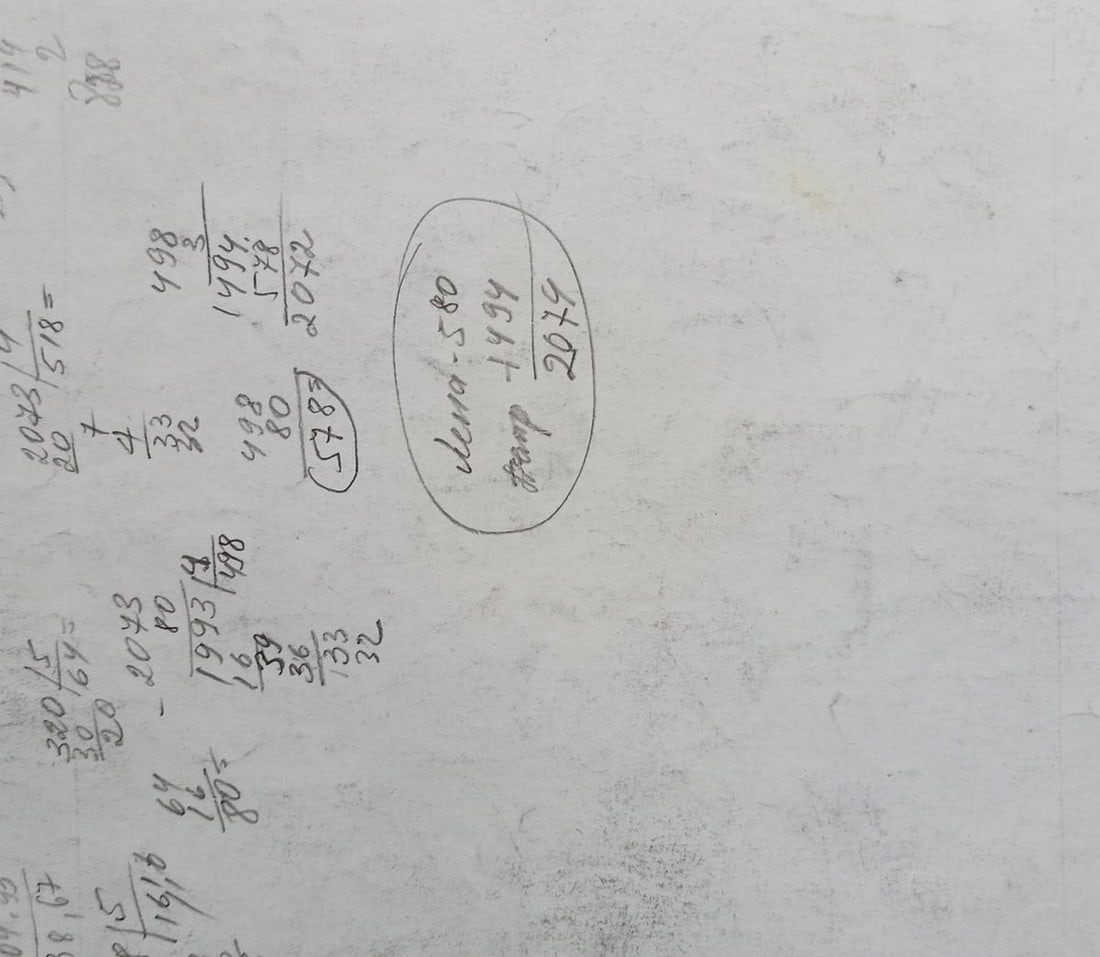 414
2
828
2073 4
20 518=
7
4
33
32
498
3
1494
578
2072
498
80
578=
320 5
30 64=
20
64
16
80=
- 2073
80
1993 4
16 498
39
36
33
32
Лена - 580
1494
2074